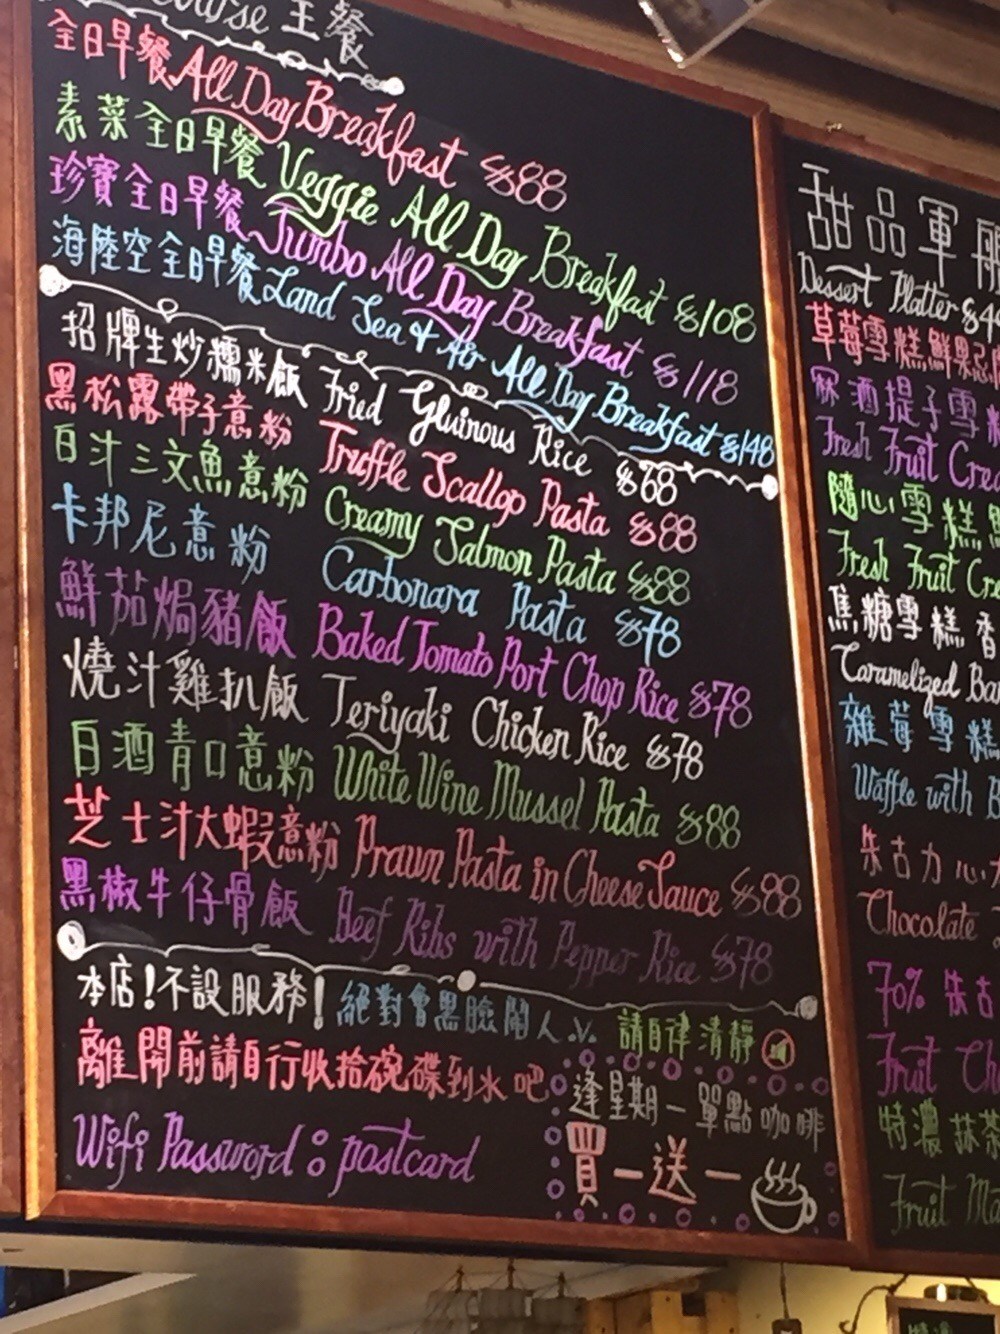 主餐
全日早餐 All Day Breakfast $88
素菜全日早餐 Veggie All Day Breakfast $108
珍寶全日早餐 Jumbo All Day Breakfast $118
海陸空全日早餐 Land Sea & Air All Day Breakfast $148
招牌生炒糯米飯 Fried Gluinous Rice $68
黑松露帶子意粉 Truffle Scallop Pasta $88
白汁三文魚意粉 Creamy Salmon Pasta $88
卡邦尼意粉 Carbonara Pasta $78
鮮茄焗豬飯 Baked Tomato Port Chop Rice $78
燒汁雞扒飯 Teriyaki Chicken Rice $78
白酒青口意粉 White Wine Mussel Pasta $88
芝士汁大蝦意粉 Prawn Pasta in Cheese Sauce $88
黑椒牛仔骨飯 Beef Ribs with Pepper Rice $78
本店!不設服務! 絕對會黑臉鬧人.v. 請自律清靜
離開前請自行收拾碗碟到水吧
Wifi Password : postcard
逢星期一單點咖啡
買一送一
甜品軍艦
Dessert Platter $4
草莓雪糕鮮果
酒提子雪糕
Fresh Fruit
隨心雪糕
Fresh Fruit
焦糖雪糕香
Caramelized
雜莓雪糕
Waffle with
朱古力心
Chocolate
70% 朱古
Fruit
特濃抹茶
Fruit